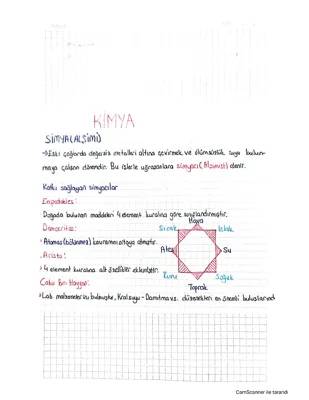 KİMYA
SİMYA(ALŞİMİ)
→Eski çağlarda değersiz metalleri altına çevirmek ve ölümsüzlük suyu bulun-
maya çalışan dönemdir. Bu işlerle uğraşanlara simyacı(Alşimist) denir.
Katkı sağlayan simyacılar
Empedokles:
Doğada bulunan maddeleri 4 element kuralına göre sınıflandırmıştır.
Democritus:
Hava
Sıcak
Islak
Ateş
Su
Kuru
Soğuk
Toprak
• Atomos(bölünmez) kavramını ortaya atmıştır.
Aristo:
• 4 element kuralına alt özellikler eklemiştir.
Cabir İbn Hayyan:
• Lab malzemelerini bulmuştur, Kral suyu - Damıtma vs. düzenekleri en önemli buluşlarındandır
CamScanner ile tarandı